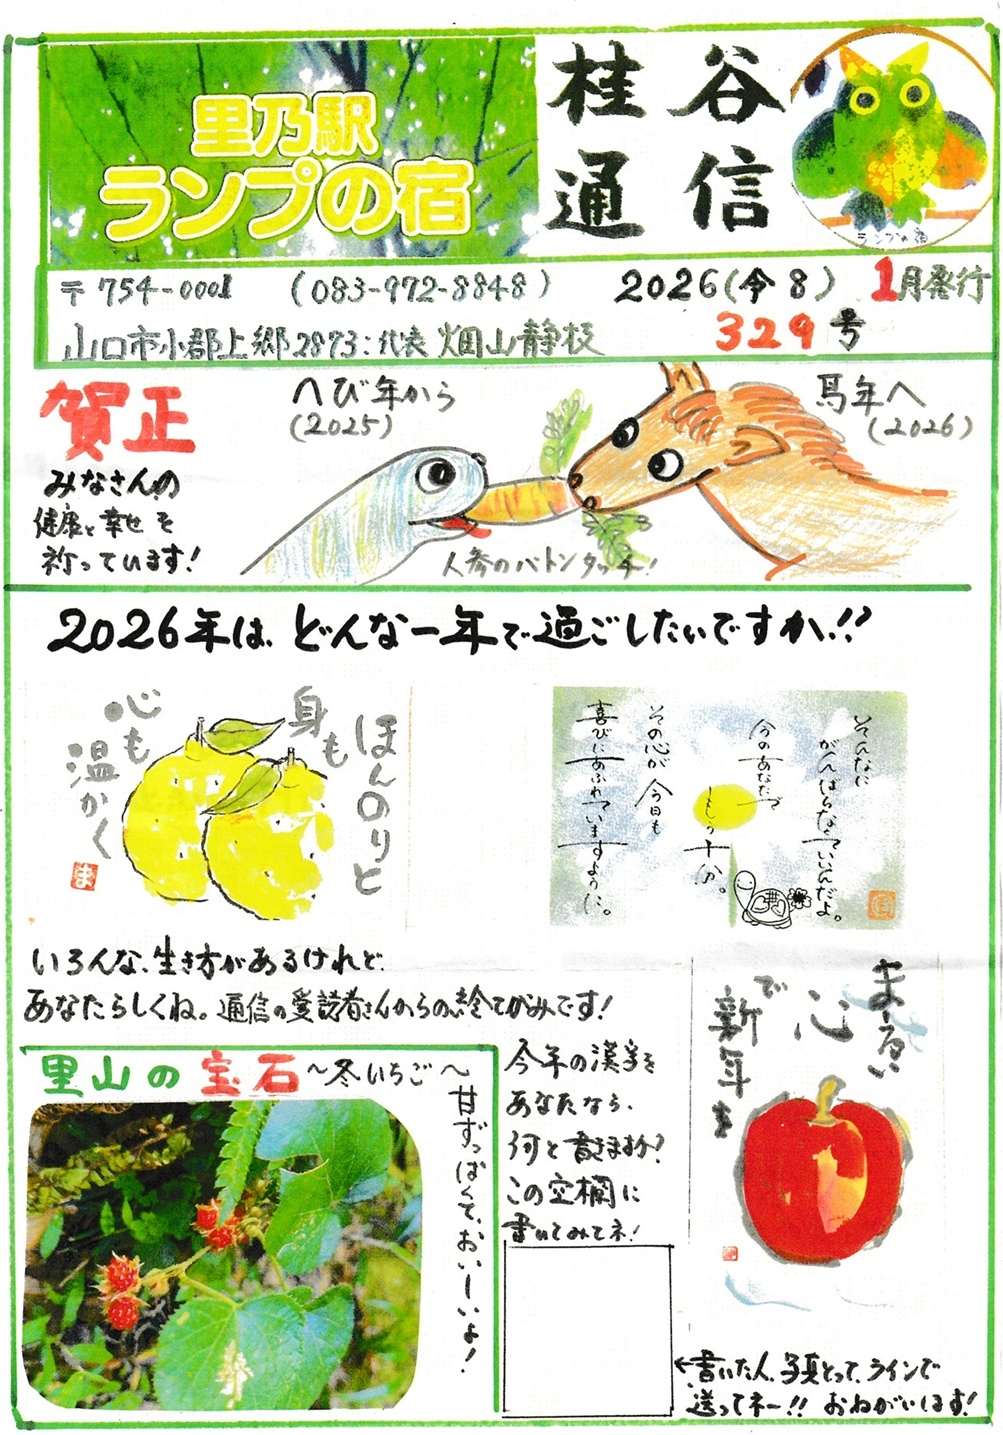 里乃駅
ランプの宿
桂谷
通信
ランプの宿
〒754-0001 (083-972-8848) 2026(令8) 1月発行
山口市小郡上郷2873:代表 畑山静枝 329号
賀正
へび年から
(2025)
馬年へ
(2026)
みなさんの
健康と幸せを
祈っています!
人参のバトンタッチ!
2026年は、どんな一年で過ごしたいですか!!
ほんのりと
身も
心も
温かく
ま
そんなに
がんばらなくていいんだよ。
今のあなたで
もう十分。
その心が今日も
喜びにあふれていますように。
いろんな、生き方があるけれど、
あなたらしくね。通信の愛読者さんからの絵てがみです!
まあるい
心
で
新年を
里山の宝石~冬いちご~
甘ずっぱくて、おいしーいよ!
今年の漢字を
あなたなら、
何と書きますか?
この空欄に
書いてみてネ!
←書いた人、写真とって、ラインで
送ってネー!! おねがいします!